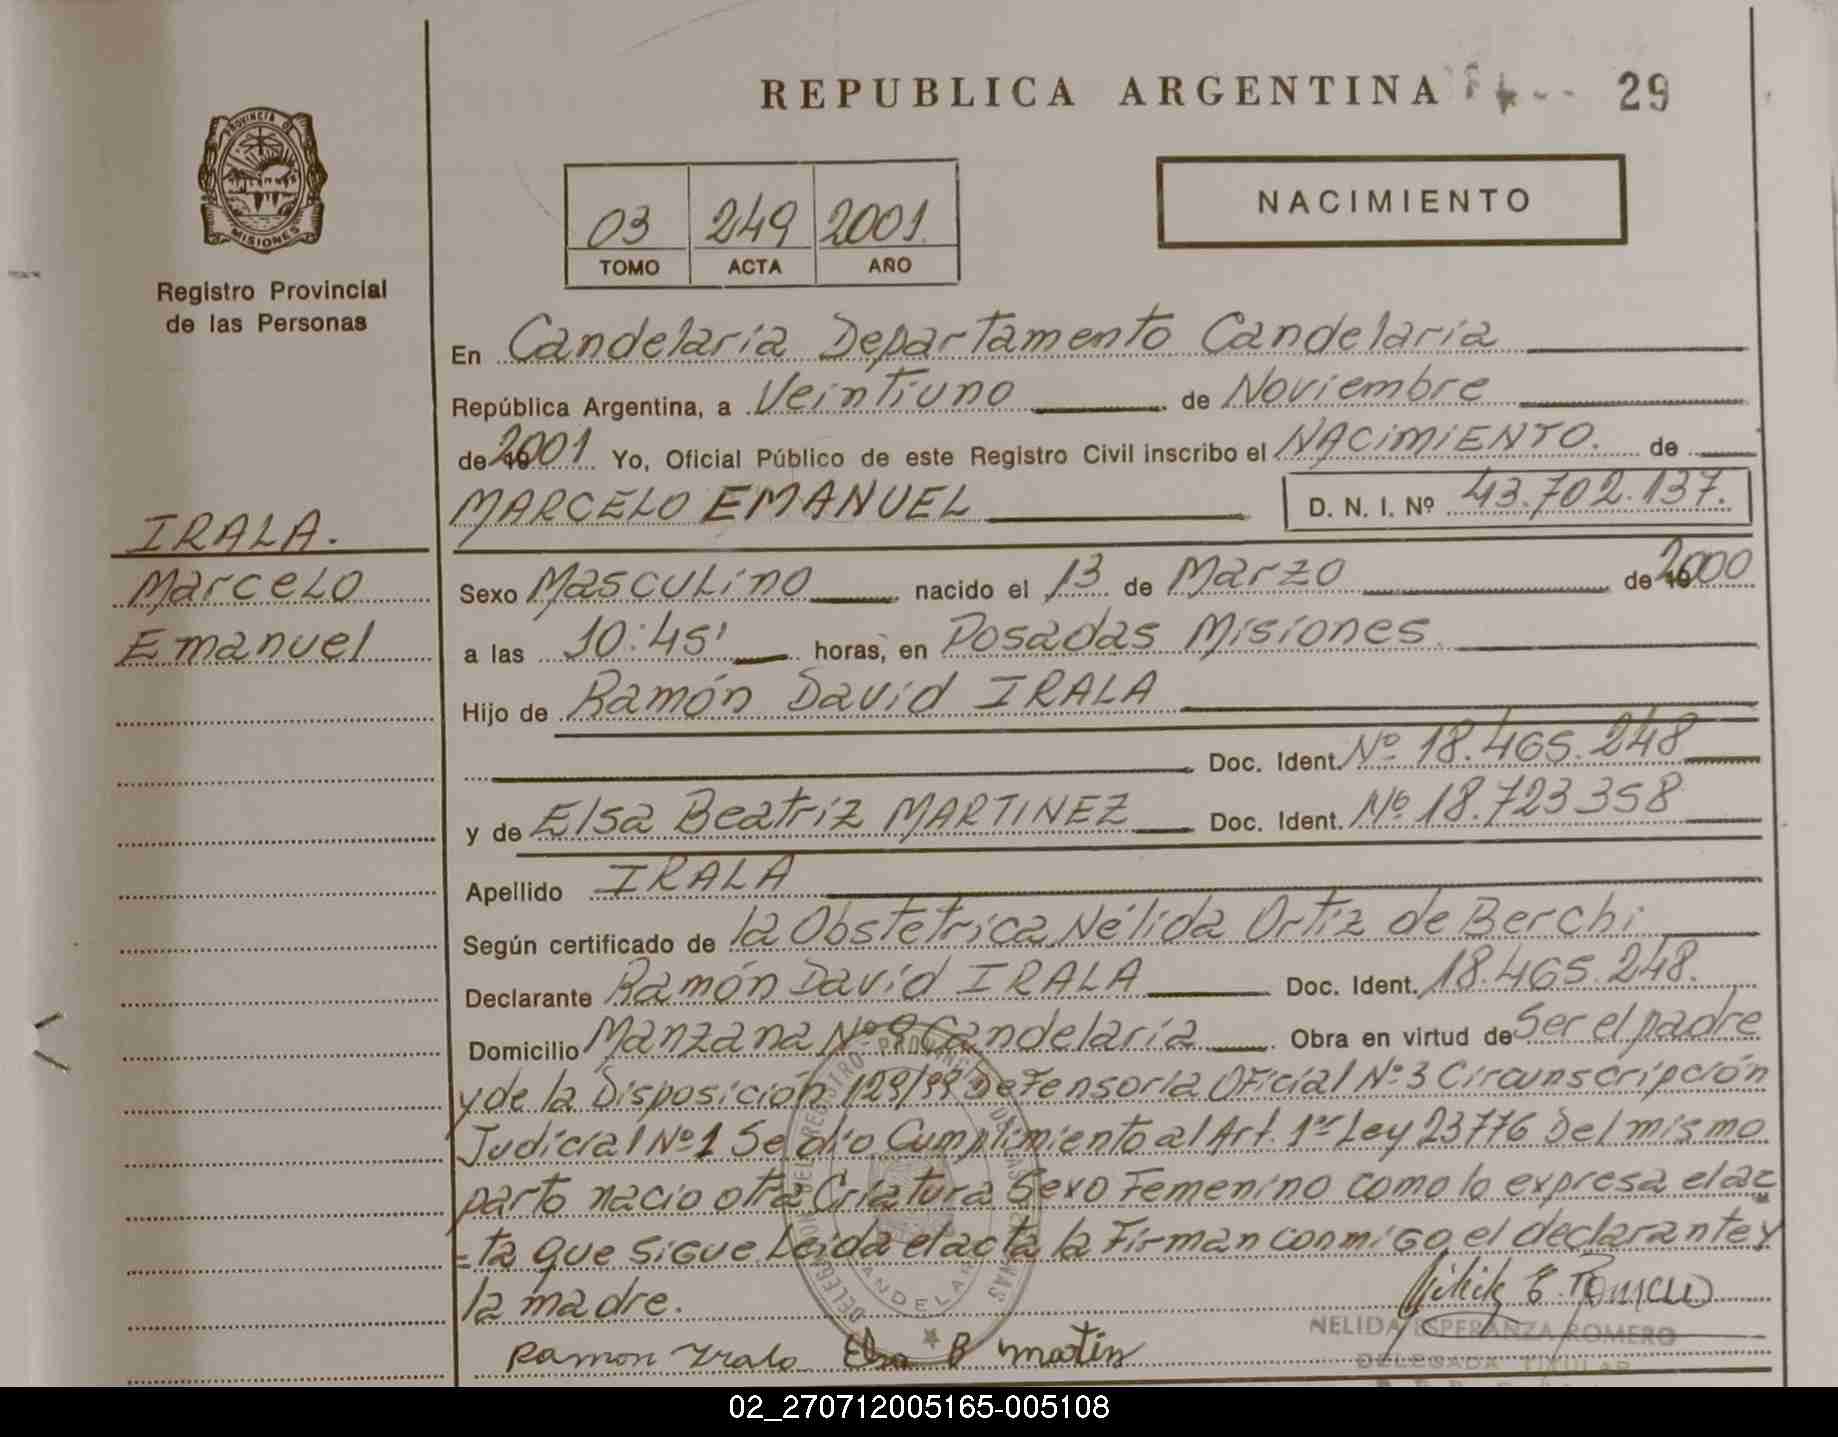 REPUBLICA ARGENTINA
29
PROVINCIA DE
MISIONES
Registro Provincial
de las Personas
03 249 2001
TOMO ACTA AÑO
NACIMIENTO
En Candelaria Departamento Candelaria
República Argentina, a Veintiuno de Noviembre
de 2001 Yo, Oficial Público de este Registro Civil inscribo el NACIMIENTO. de
MARCELO EMANUEL D. N. I. Nº 43.702.137.
IRALA.
Marcelo
Emanuel
Sexo Masculino nacido el 13 de Marzo de 2000
a las 10:45' horas, en Posadas Misiones
Hijo de Ramón David IRALA
Doc. Ident. Nº 18.465.248
y de Elsa Beatriz MARTINEZ Doc. Ident. Nº 18.723358
Apellido IRALA
Según certificado de la Obstetrica Nélida Ortiz de Berchi
Declarante Ramón David IRALA Doc. Ident. 18.465.248.
Domicilio Manzana Nº 9 Candelaria Obra en virtud de Ser el padre
y de la Disposición 129/99 Defensoria Oficial Nº 3 Circunscripción
Judicial Nº 1 Se dio Cumplimiento al Art. 1º Ley 23776 Del mismo
parto nacio otra Criatura Sexo Femenino como lo expresa el ac
=ta que sigue Leida el acta la Firman conmigo el declarante y
la madre.
Ramon Irala Elsa B Martin
NELIDA ESPERANZA ROMERO
DELEGADA TITULAR
02_270712005165-005108